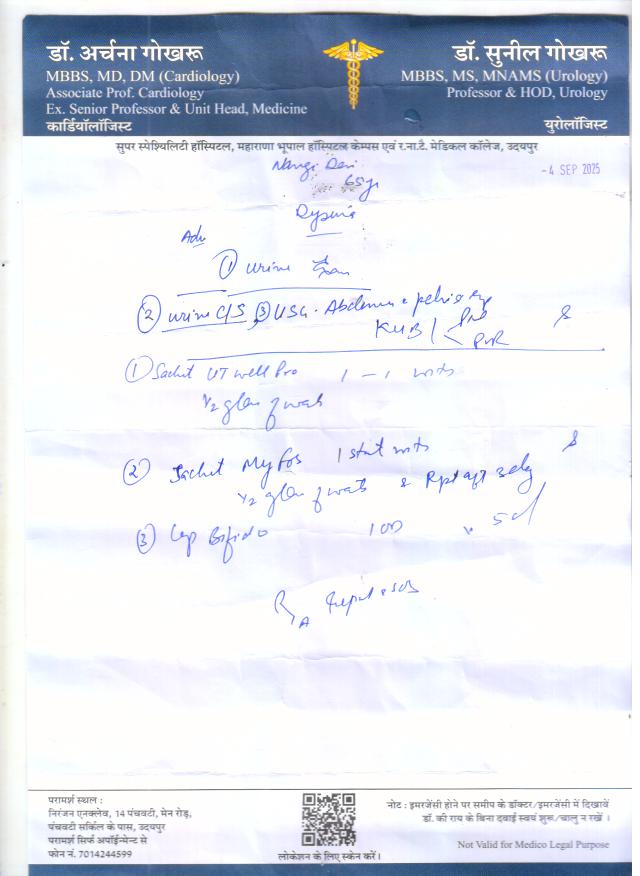 डॉ. अर्चना गोखरू
MBBS, MD, DM (Cardiology)
Associate Prof. Cardiology
Ex. Senior Professor & Unit Head, Medicine
कार्डियॉलॉजिस्ट
डॉ. सुनील गोखरू
MBBS, MS, MNAMS (Urology)
Professor & HOD, Urology
युरोलॉजिस्ट
सुपर स्पेश्यिलिटी हॉस्पिटल, महाराणा भूपाल हॉस्पिटल केम्पस एवं र.ना.टै. मेडिकल कॉलेज, उदयपुर
- 4 SEP 2025
65y
Adv
① Urine
② Urine C/S, ③ USG. Abdomen
KUB
PVR
① Sachet UT well Pro 1 – 1
½ glass of
② Sachet My Fos 1 stat
½ glass of
③ Cap Bifido 1 OD
परामर्श स्थल :
निरंजन एनक्लेव, 14 पंचवटी, मेन रोड़,
पंचवटी सर्किल के पास, उदयपुर
परामर्श सिर्फ अपॉईन्मेन्ट से
फोन नं. 7014244599
लोकेशन के लिए स्केन करें।
नोट : इमरजेंसी होने पर समीप के डॉक्टर/इमरजेंसी में दिखावें
डॉ. की राय के बिना दवाई स्वयं शुरू/चालु न रखें ।
Not Valid for Medico Legal Purpose